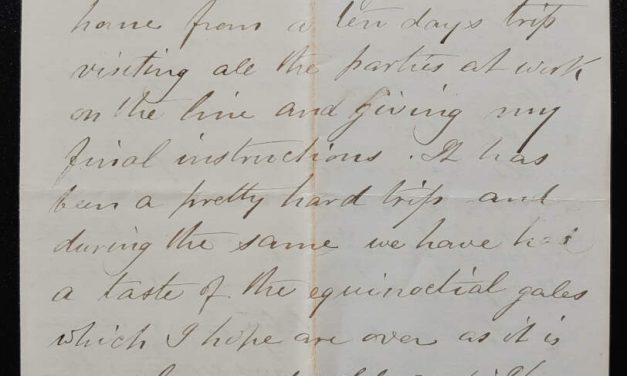 home from a ten days trip
visiting all the parties at work
on the line and giving my
final instructions. It has
been a pretty hard trip and
during the same we have had
a taste of the equinoctial gales
which I hope are over as it is